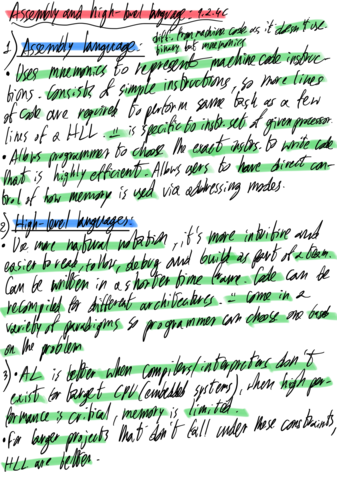 Assembly and high-level language: 1.2.4c
1) Assembly language: diff. from machine code as it doesn't use binary but mnemonics
• Uses mnemonics to represent machine code instruc-
tions. Consists of simple instructions, so more lines
of code are required to perform same task as a few
lines of a HLL. –"– is specific to instr. set of given processor
• Allows programmer to choose the exact instrs. to write code
that is highly efficient. Allows users to have direct con-
trol of how memory is used via addressing modes.
2) High-level languages:
• Use more natural notation, it's more intuitive and
easier to read, follow, debug and build as part of a team.
Can be written in a shorter time frame. Code can be
recompiled for different architectures. –"– come in a
variety of paradigms so programmer can choose one based
on the problem
3) • AL is better when compilers/interpreters don't
exist for target CPU (embedded systems), when high per-
formance is critical, memory is limited.
• For larger projects that don't fall under those constraints,
HLL are better.